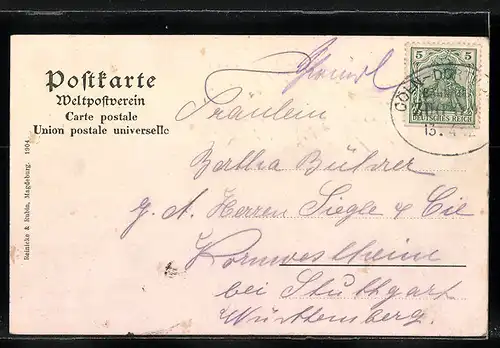 Postkarte
Weltpostverein
Carte postale
Union postale universelle
Reinicke & Rubin, Magdeburg. 1904.
5 5
DEUTSCHES REICH
CÖLN-
BAHNPOST
Fräulein
Bertha Bührer
z. A. Herren Siegle & Cie
Kornwestheim
bei Stuttgart
Württemberg.